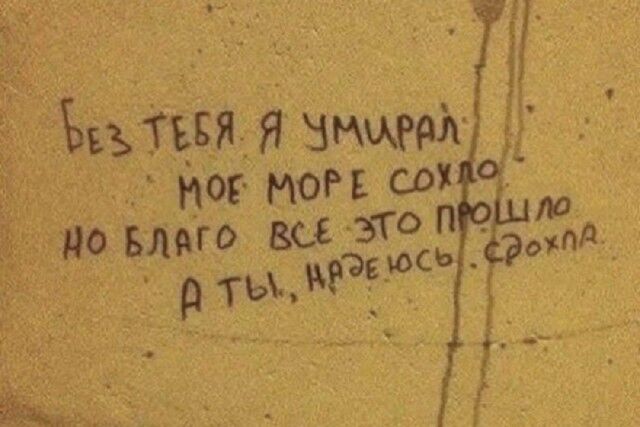 БЕЗ ТЕБЯ Я УМИРАЛ
МОЕ МОРЕ СОХЛО
НО БЛАГО ВСЕ ЭТО ПРОШЛО
А ТЫ, НАДЕЮСЬ, СДОХЛА.